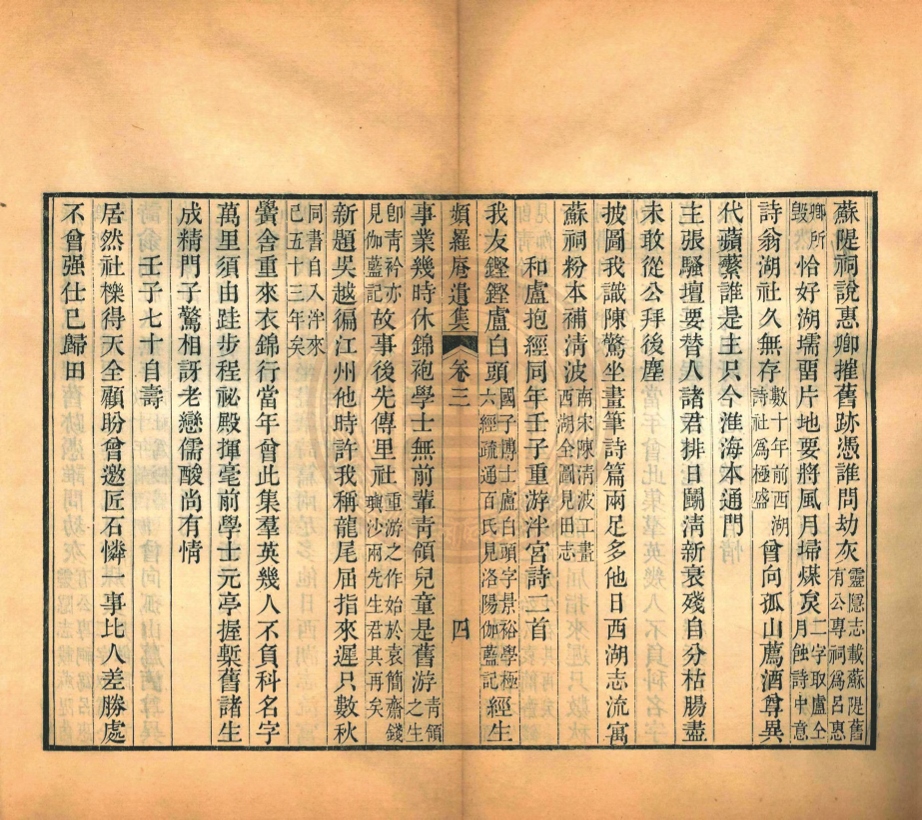 蘇隄祠說惠卿摧舊跡憑誰問劫灰靈隱志載蘇隄舊有公專祠爲呂惠
卿所毀恰好湖壖畱片地要將風月埽煤炱二字取盧仝月蝕詩中意
詩翁湖社久無存數十年前西湖詩社爲極盛曾向孤山薦酒尊異
代蘋蘩誰是主只今淮海本通門
主張騷壇要替人諸君排日鬭淸新衰殘自分枯腸盡
未敢從公拜後塵
披圖我識陳驚坐畫筆詩篇兩足多他日西湖志流寓
蘇祠粉本補淸波南宋陳淸波工畫西湖全圖見田志
和盧抱經同年壬子重游泮宮詩二首
我友鏗鏗盧白頭國子博士盧白頭字景裕學極六經疏通百氏見洛陽伽藍記經生
頻羅庵遺集 卷三 四
事業幾時休錦袍學士無前輩靑領兒童是舊游靑領之生
卽靑衿亦見伽藍記故事後先傳里社重游之作始於袁簡齋錢璵沙兩先生君其再矣
新題吳越徧江州他時許我稱龍尾屈指來遲只數秋
同書自入泮來已五十三年矣
黌舍重來衣錦行當年曾此集羣英幾人不負科名字
萬里須由跬步程祕殿揮毫前學士元亭握槧舊諸生
成精門子驚相訝老戀儒酸尚有情
壬子七十自壽
居然社櫟得天全顧盼曾邀匠石憐一事比人差勝處
不曾强仕已歸田